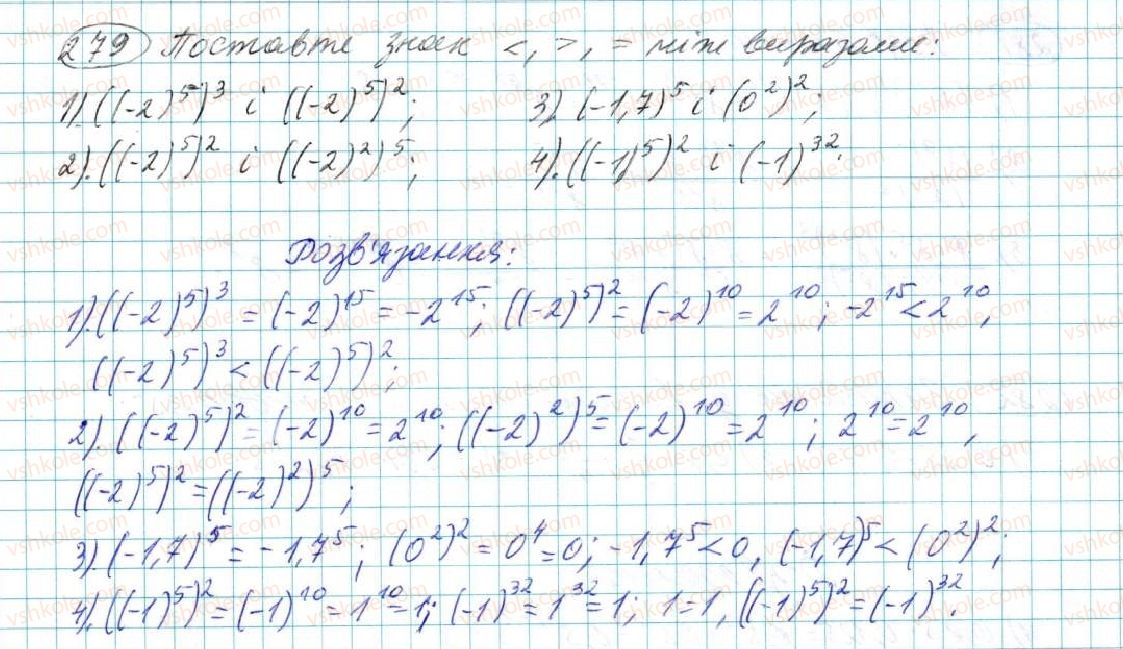 279 Поставте знак <, >, = між виразами:
1). ((-2)^5)^3 і ((-2)^5)^2; 3) (-1,7)^5 і (0^2)^2;
2). ((-2)^5)^2 і ((-2)^2)^5; 4). ((-1)^5)^2 і (-1)^32.
Розв'язання:
1). ((-2)^5)^3 = (-2)^15 = -2^15; ((-2)^5)^2 = (-2)^10 = 2^10; -2^15 < 2^10,
((-2)^5)^3 < ((-2)^5)^2;
2). ((-2)^5)^2 = (-2)^10 = 2^10; ((-2)^2)^5 = (-2)^10 = 2^10; 2^10 = 2^10,
((-2)^5)^2 = ((-2)^2)^5;
3) (-1,7)^5 = -1,7^5; (0^2)^2 = 0^4 = 0; -1,7^5 < 0, (-1,7)^5 < (0^2)^2;
4). ((-1)^5)^2 = (-1)^10 = 1^10 = 1; (-1)^32 = 1^32 = 1; 1 = 1, ((-1)^5)^2 = (-1)^32.
vshkole.com